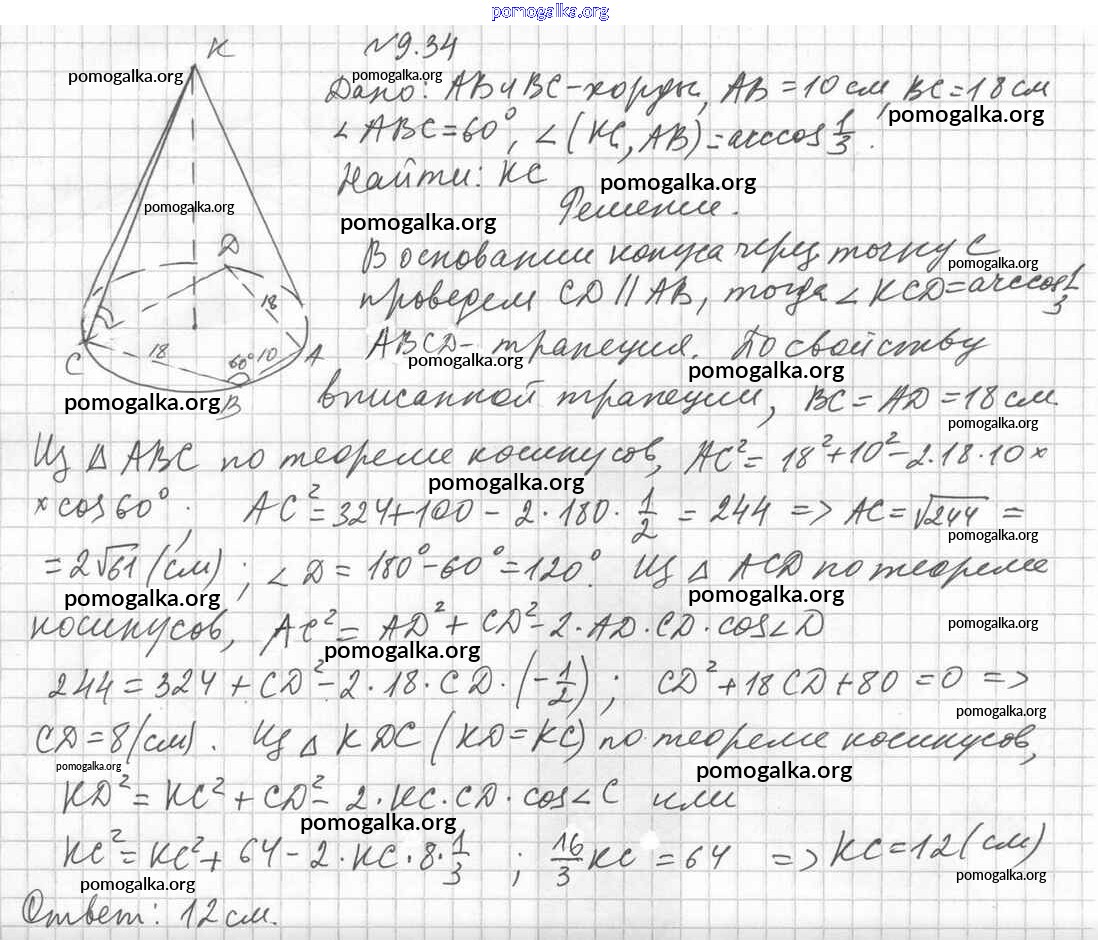 pomogalka.org
№9.34
K
pomogalka.org
pomogalka.org
Дано: AB и BC - хорды, AB = 10 см, BC = 18 см
pomogalka.org
∠ABC = 60°, ∠(KC, AB) = arccos 1/3.
Найти: KC
pomogalka.org
pomogalka.org
pomogalka.org
Решение.
В основании конуса через точку C
pomogalka.org
проведем CD ∥ AB, тогда ∠KCD = arccos 1/3
D
18
ABCD - трапеция. По свойству
pomogalka.org
pomogalka.org
C
18
60°
10
A
B
pomogalka.org
вписанной трапеции, BC = AD = 18 см.
pomogalka.org
Из △ ABC по теореме косинусов, AC² = 18² + 10² - 2·18·10 ×
pomogalka.org
× cos 60°; AC² = 324 + 100 - 2·180·1/2 = 244 => AC = √244 =
pomogalka.org
= 2√61 (см); ∠D = 180° - 60° = 120°. Из △ ACD по теореме
pomogalka.org
pomogalka.org
косинусов, AC² = AD² + CD² - 2·AD·CD·cos∠D
pomogalka.org
pomogalka.org
244 = 324 + CD² - 2·18·CD·(-1/2); CD² + 18CD + 80 = 0 =>
pomogalka.org
CD = 8 (см). Из △ KDC (KD = KC) по теореме косинусов,
pomogalka.org
pomogalka.org
KD² = KC² + CD² - 2·KC·CD·cos∠C или
pomogalka.org
KC² = KC² + 64 - 2·KC·8·1/3; 16/3 KC = 64 => KC = 12 (см)
pomogalka.org
pomogalka.org
Ответ: 12 см.